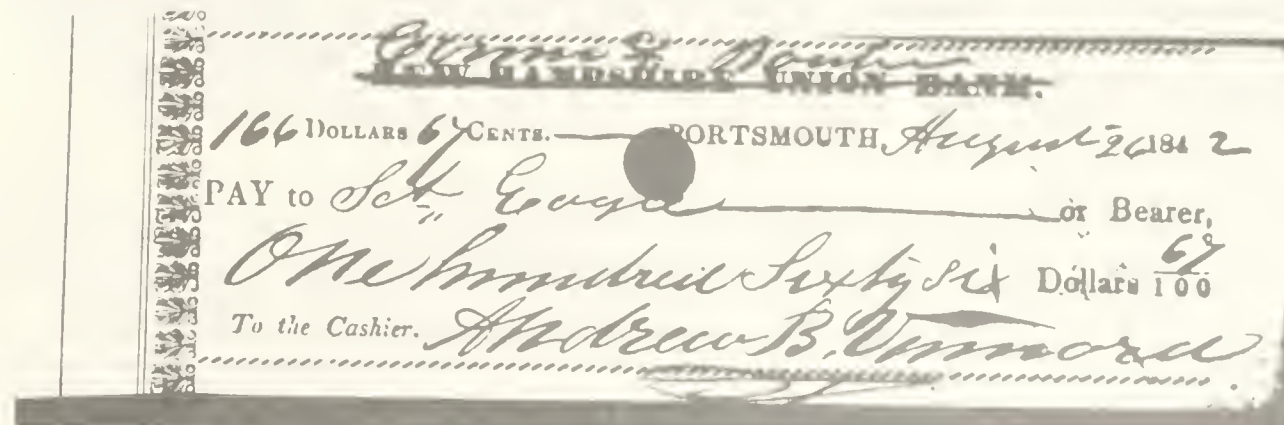 NEW HAMPSHIRE UNION BANK.
166 DOLLARS 67 CENTS. PORTSMOUTH, August 26 1842
PAY to Sch or Bearer,
One hundred Sixty six Dollars 67/100
To the Cashier. Andrew B. Vennard